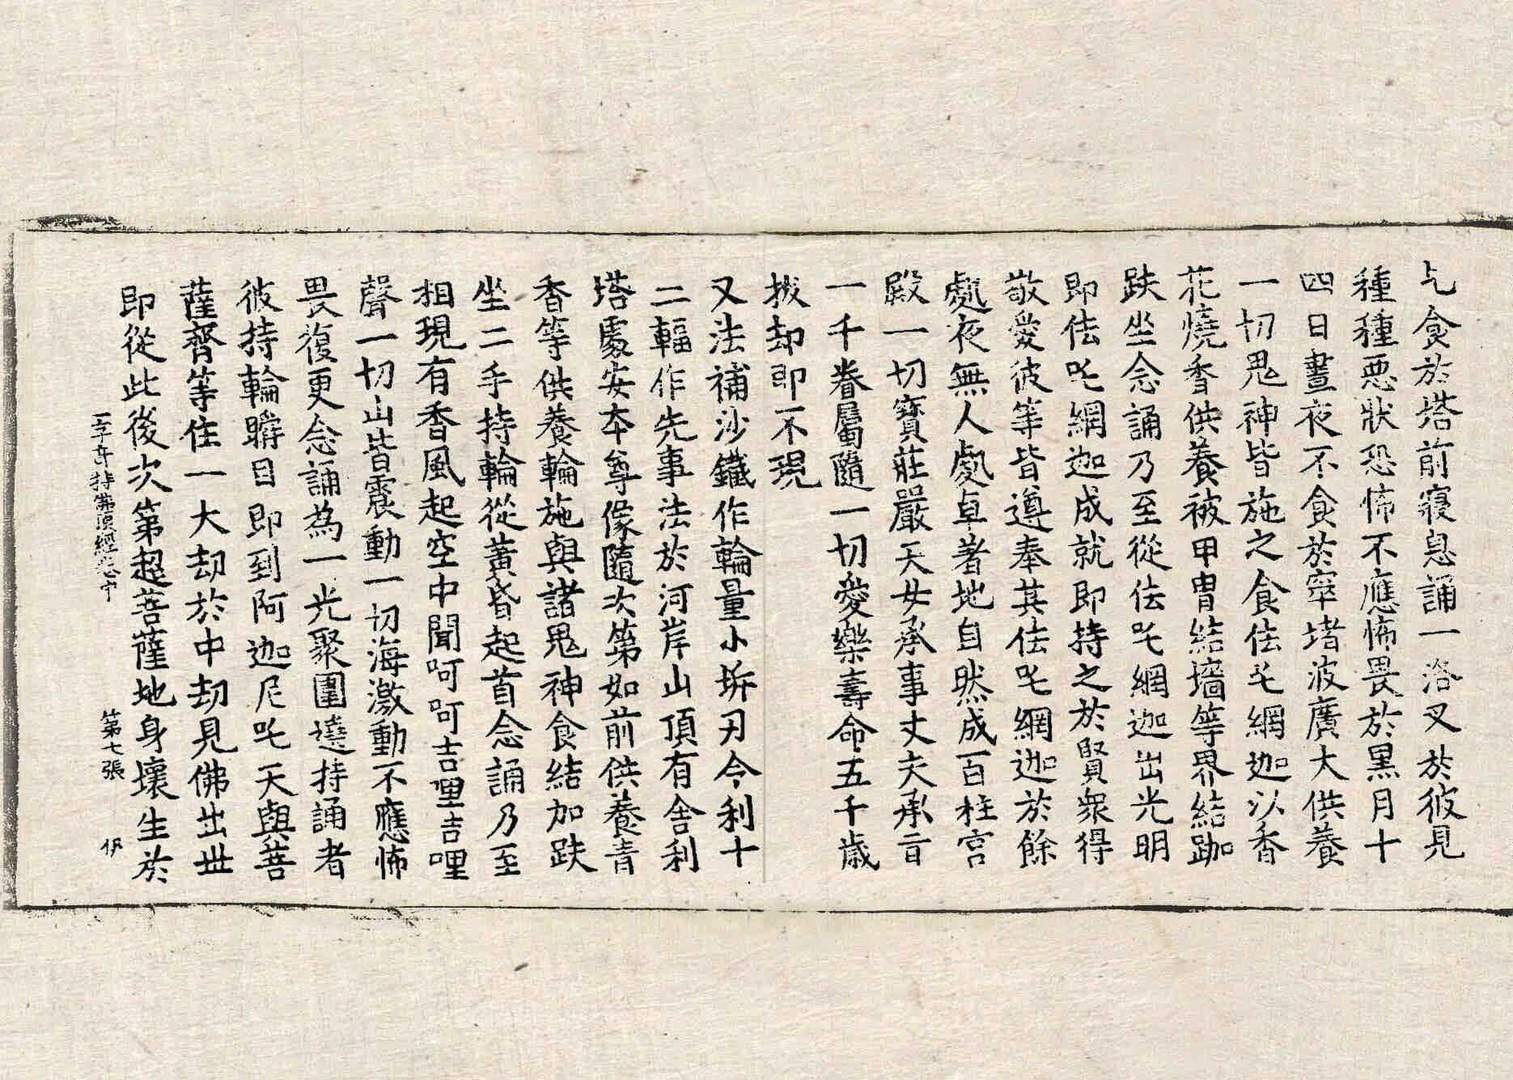 乞食於塔前寢息誦一洛叉於彼見
種種惡狀恐怖不應怖畏於黑月十
四日晝夜不食於窣堵波廣大供養
一切鬼神皆施之食佉吒網迦以香
花燒香供養被甲冑結墻等界結跏
趺坐念誦乃至從佉吒網迦出光明
即佉吒網迦成就即持之於賢衆得
敬愛彼等皆遵奉其佉吒網迦於餘
處夜無人處卓著地自然成百柱宮
殿一切寶莊嚴天女承事丈夫承言
一千眷屬隨一切愛樂壽命五千歲
拔却即不現
又法補沙鐵作輪量小㭊刃令利十
二輻作先事法於河岸山頂有舍利
塔處安本尊像隨次第如前供養青
香等供養輪施與諸鬼神食結加趺
坐二手持輪從黃昏起首念誦乃至
相現有香風起空中聞呵呵吉哩吉哩
聲一切山皆震動一切海激動不應怖
畏復更念誦為一光聚圍遶持誦者
彼持輪瞬目即到阿迦尼吒天與菩
薩齊等住一大劫於中劫見佛出世
即從此後次第超菩薩地身壞生於
一字奇特佛頂經卷中 第七張 伊